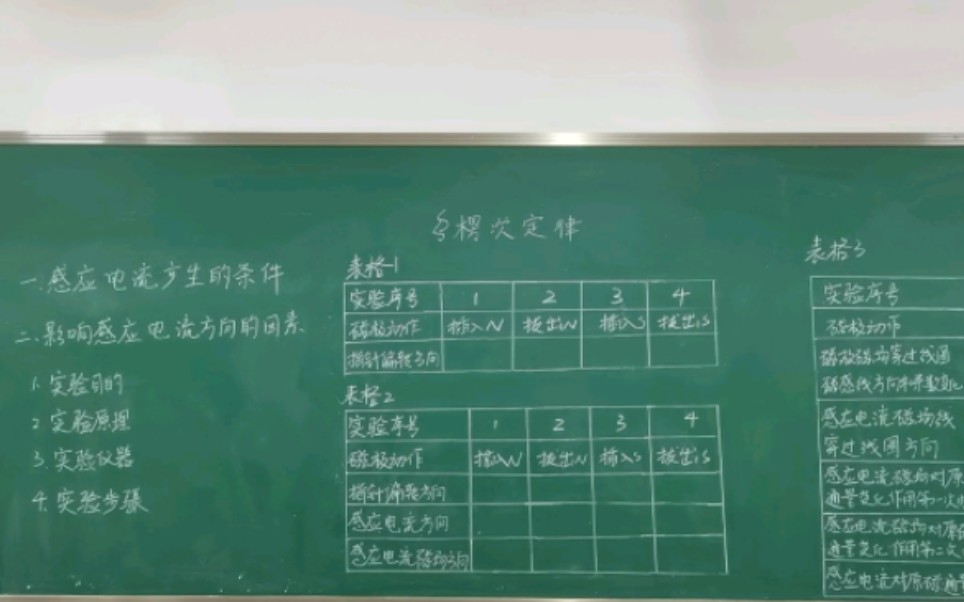 §楞次定律
一.感应电流产生的条件
二.影响感应电流方向的因素
1.实验目的
2.实验原理
3.实验仪器
4.实验步骤
表格1
实验序号 1 2 3 4
磁极动作 插入N 拔出N 插入S 拔出S
指针偏转方向
表格2
实验序号 1 2 3 4
磁极动作 插入N 拔出N 插入S 拔出S
指针偏转方向
感应电流方向
感应电流磁场方向
表格3
实验序号
磁极动作
磁感线方向 变化
感应电流磁场线
穿过线圈方向
感应电流磁场对原
通量变化作用第一次
感应电流磁场对原
通量变化作用第二次
感应电流对原磁通